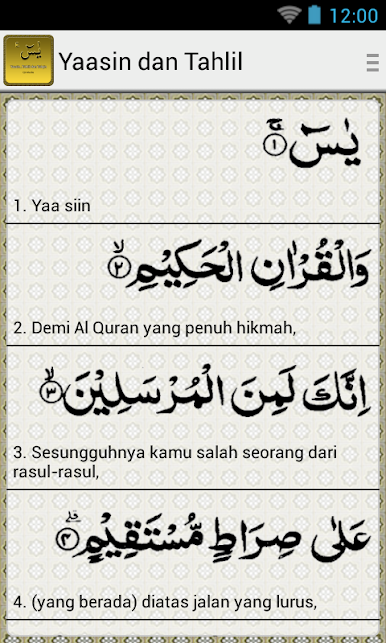 12:00
Yaasin dan Tahlil
يٰسٓ ۚ ۝١
1. Yaa siin
وَالْقُرْاٰنِ الْحَكِيْمِۙ ۝٢
2. Demi Al Quran yang penuh hikmah,
اِنَّكَ لَمِنَ الْمُرْسَلِيْنَۙ ۝٣
3. Sesungguhnya kamu salah seorang dari
rasul-rasul,
عَلٰى صِرَاطٍ مُّسْتَقِيْمٍۗ ۝٤
4. (yang berada) diatas jalan yang lurus,